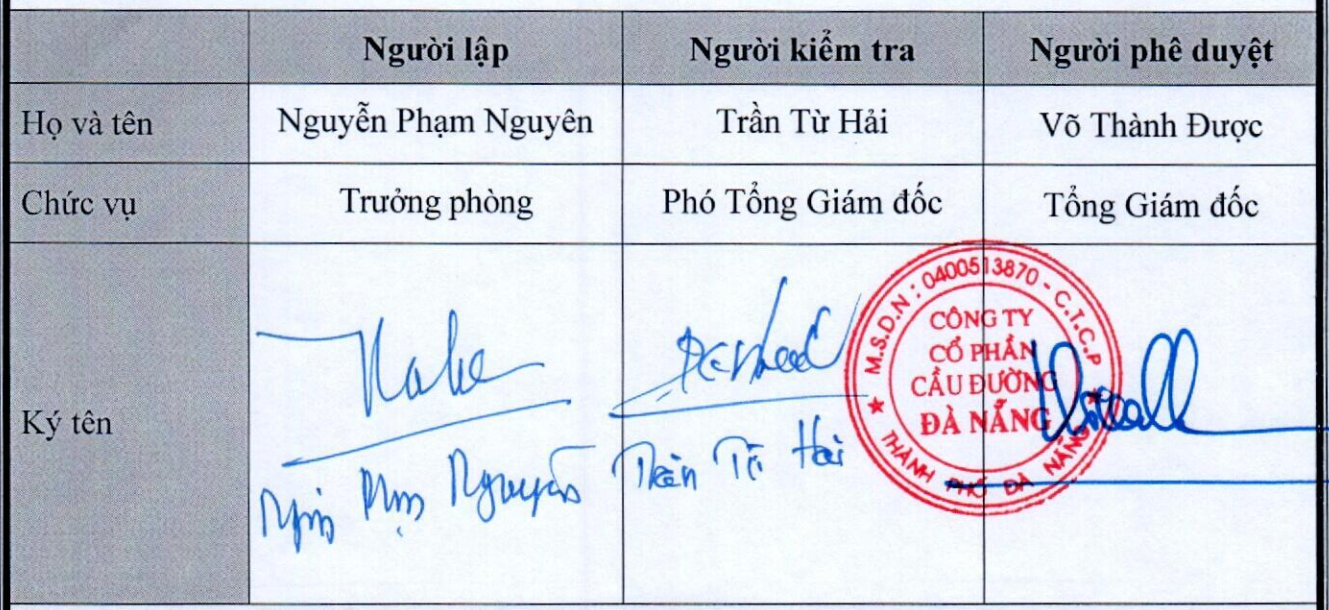 Người lập Người kiểm tra Người phê duyệt
Họ và tên Nguyễn Phạm Nguyên Trần Từ Hải Võ Thành Được
Chức vụ Trưởng phòng Phó Tổng Giám đốc Tổng Giám đốc
Ký tên
M.S.D.N : 0400513870 - C.T.C.P
CÔNG TY
CỔ PHẦN
CẦU ĐƯỜNG
ĐÀ NẴNG
THÀNH PHỐ ĐÀ NẴNG
Trần Từ Hải